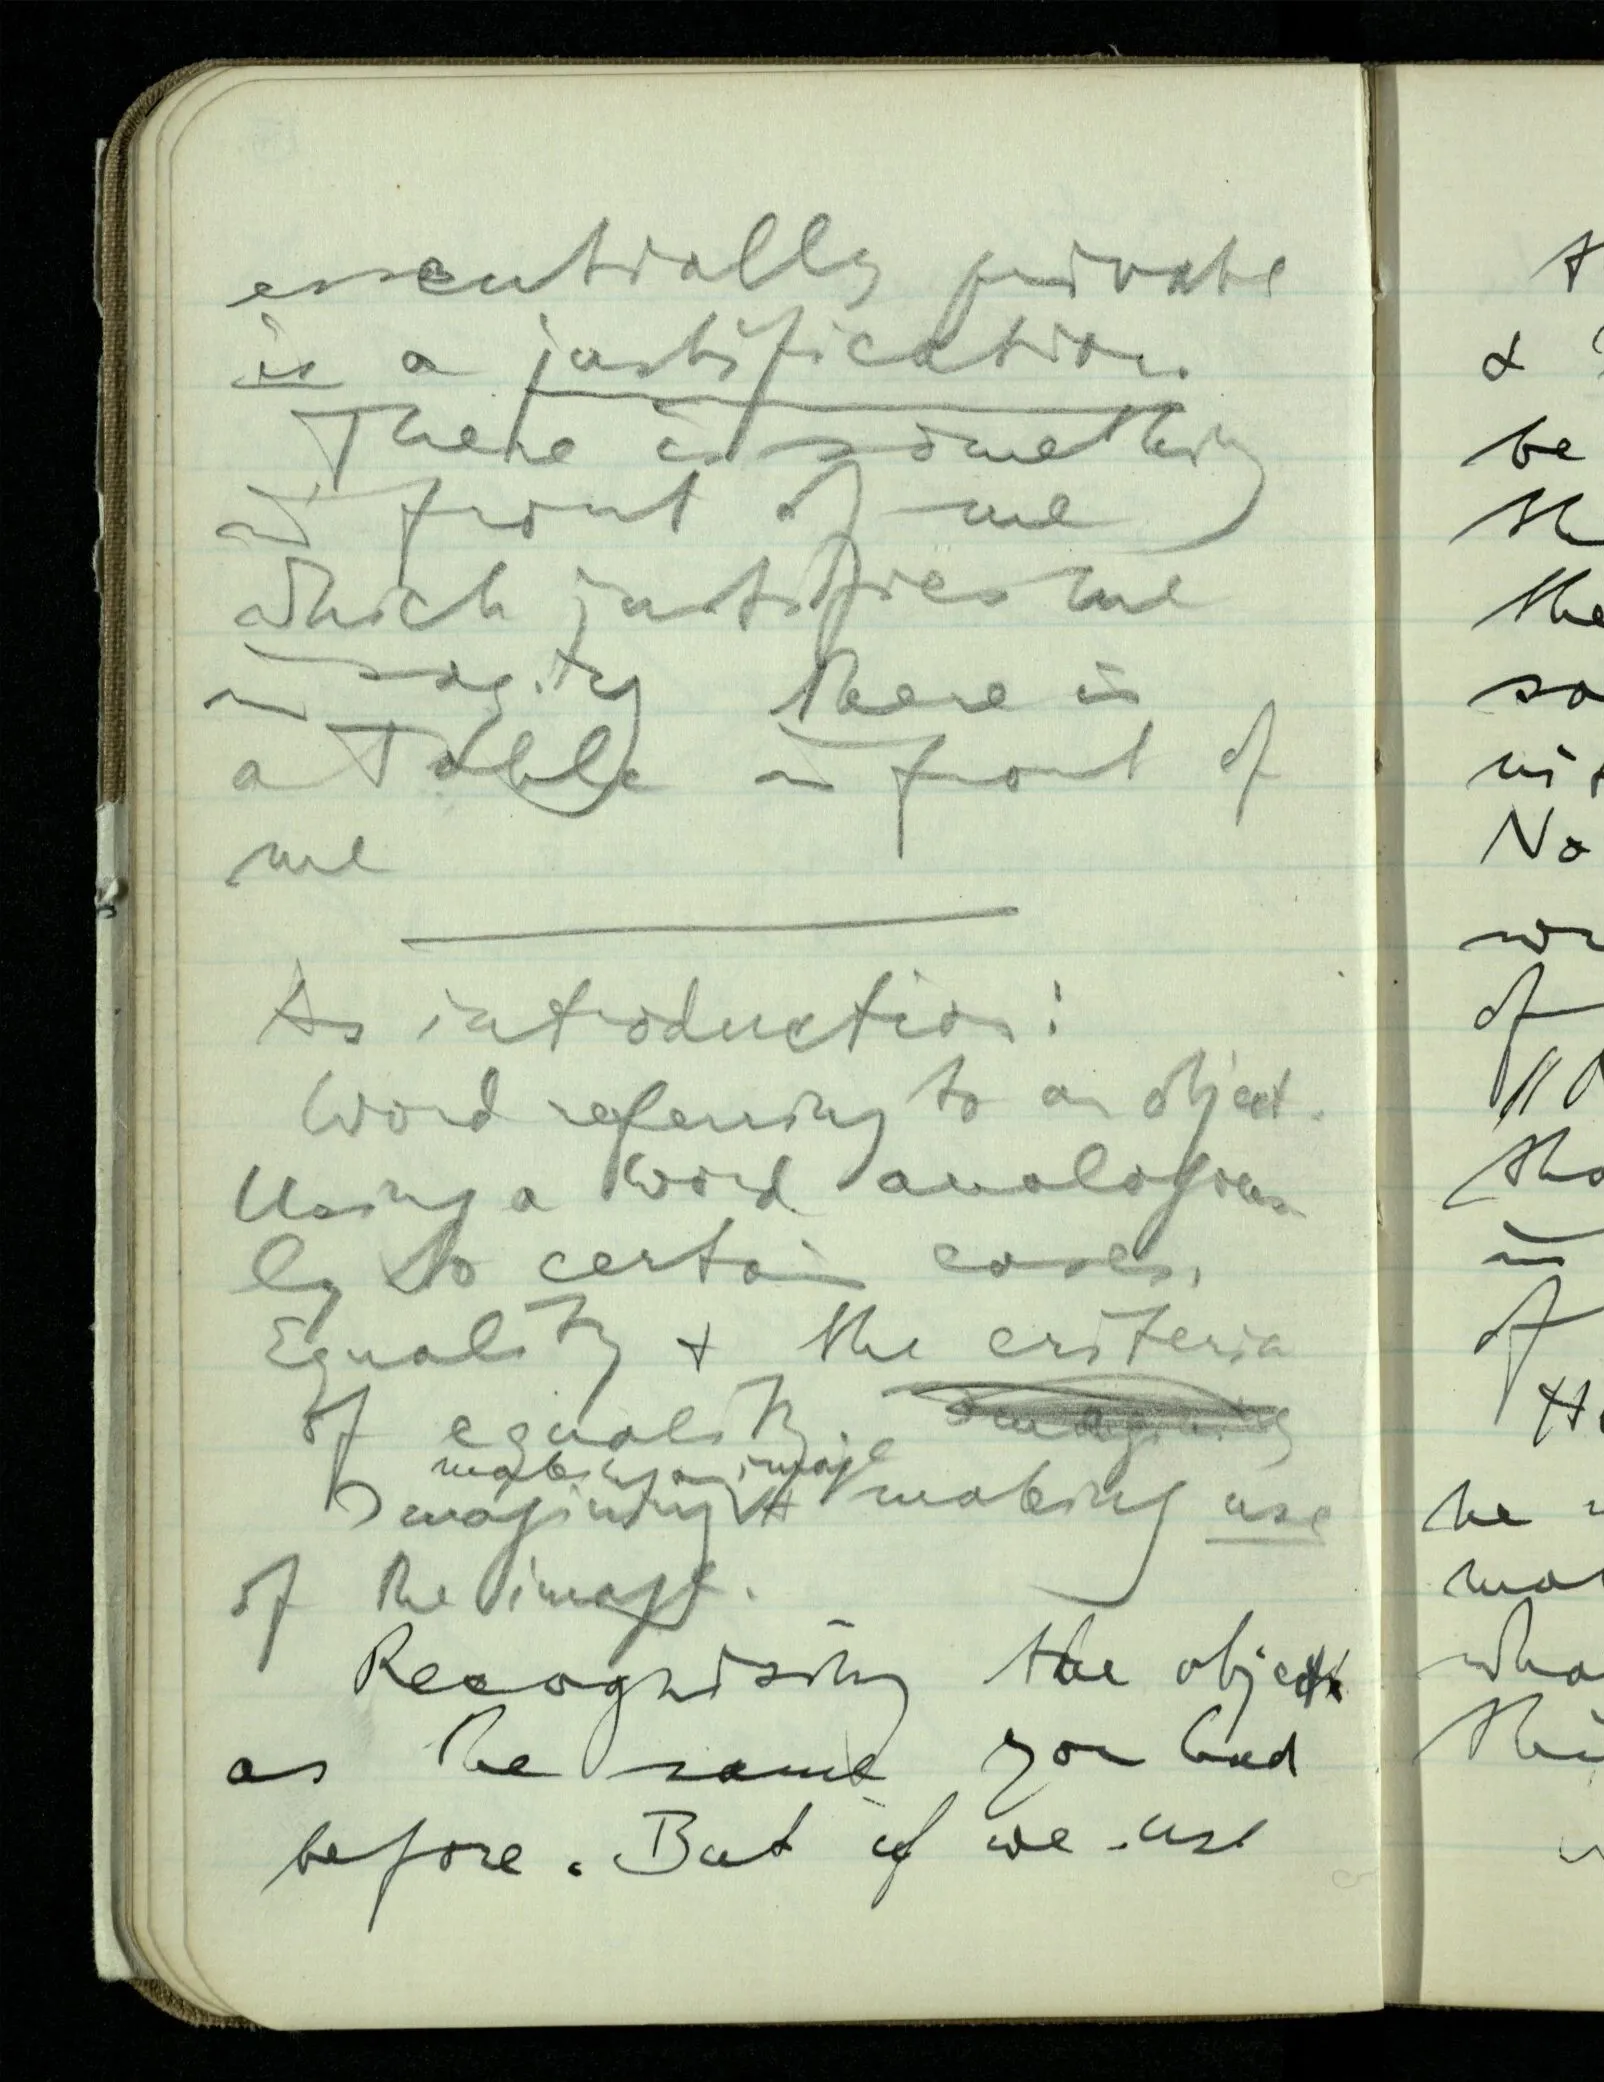 essentially private
is a justification.
There is something
in front of me
which justifies me
in saying there is
a table in front of
me
As introduction:
Word referring to an object.
Using a word analogous
ly to certain cases.
Equality & the criteria
of equality. Imagining
making an image
Imagining & making use
of the image.
Recognising the object
as the same you had
before. But if we use
&
be
the
so
No
of
in
of
he